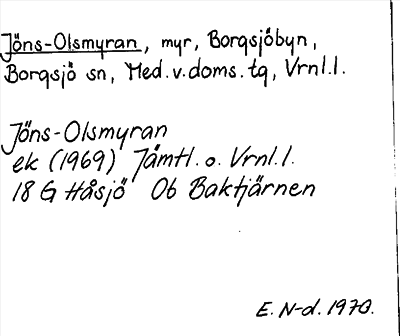 Jöns-Olsmyran, myr, Borgsjöbyn,
Borgsjö sn, Med.v.doms.tg, Vrnl.l.
Jöns-Olsmyran
ek (1969) Jämtl. o. Vrnl.l.
18 G Håsjö Ob Baktjärnen
E. N-d. 1970.